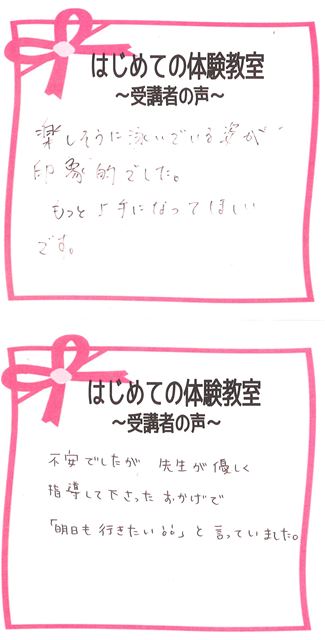 はじめての体験教室
～受講者の声～
楽しそうに泳いでいる姿が
印象的でした。
もっと上手になってほしい
です。
はじめての体験教室
～受講者の声～
不安でしたが 先生が優しく
指導して下さったおかげで
「明日も行きたい!!」と言っていました。